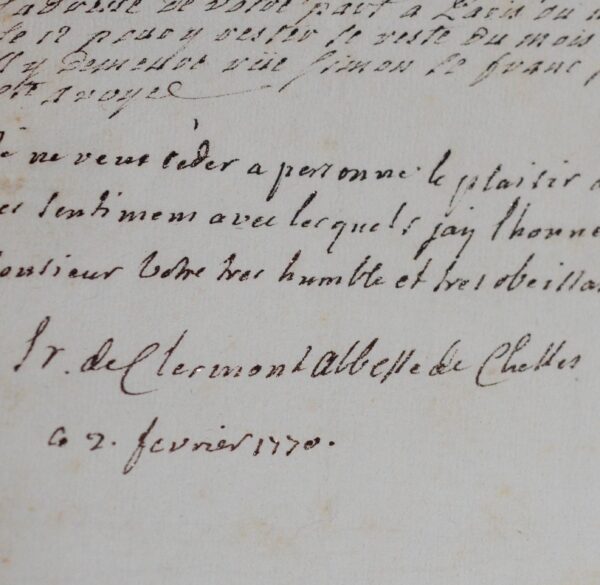 ladresse de votre part a Paris ou
le 12 pour y rester le reste du mois
il y demeure rüe simon le franc
ste avoye
je ne veut céder a personne le plaisir
es sentimens avec lesquels jay lhonne
onsieur Votre tres humble et tres obeissa
Sr. de Clermont Abbesse de Chelles
ce 2. fevrier 1770.